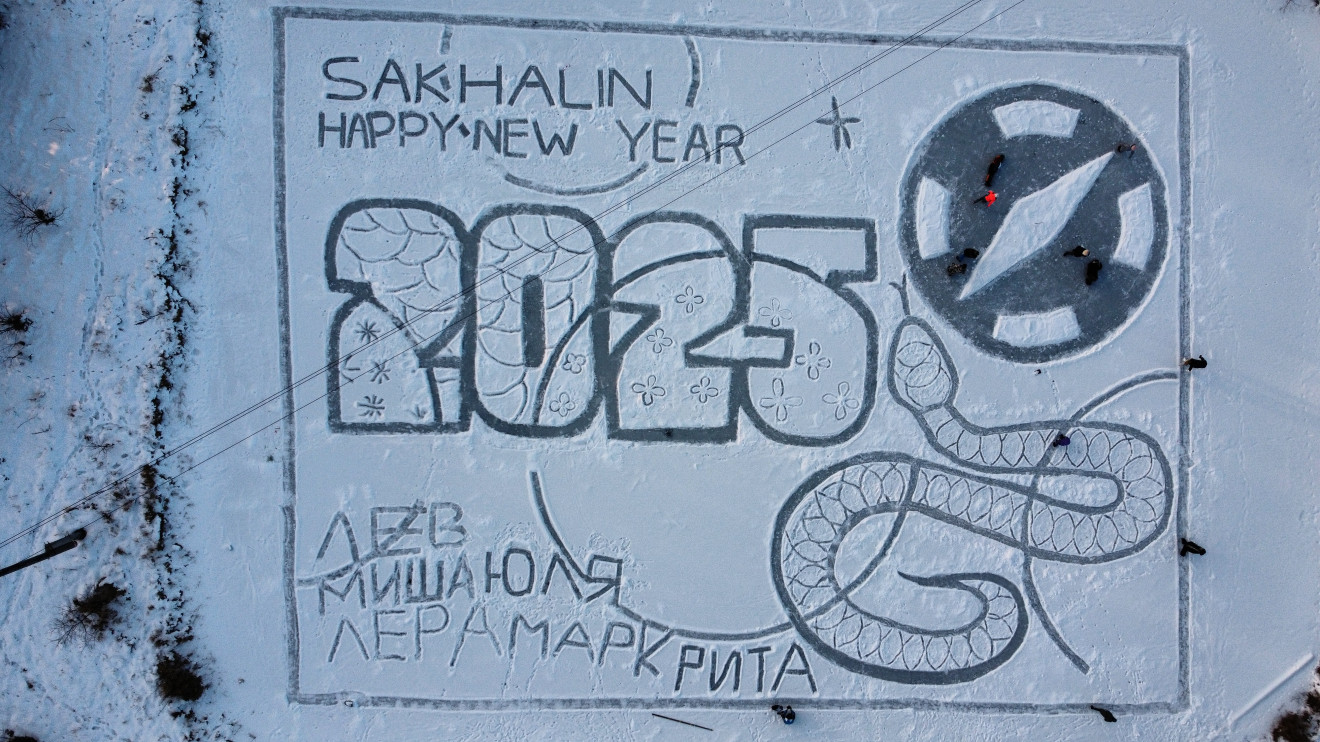 SAKHALIN
HAPPY NEW YEAR
2025
ЛЕВ
МИША ЮЛЯ
ЛЕРА МАРК РИТА